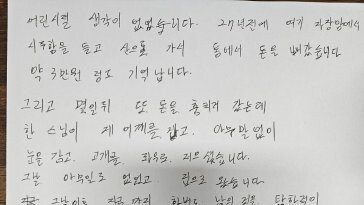 어린시절 생각이 없었습니다. 27년전에 여기 자장암에서
시주함을 들고 산으로 가서 통에서 돈을 빼갔습니다
약 3만원 정도 기억납니다.
그리고 몇일뒤 또 돈을 훔치러 갔는데
한 스님이 제 어깨를 잡고, 아무말 없이
눈을 감고, 고개를 좌우로 저으셨습니다.
그날 아무일도 없었고, 집으로 왔습니다.
그날이후 지금까지 한번도 남의 것을 탐하적이